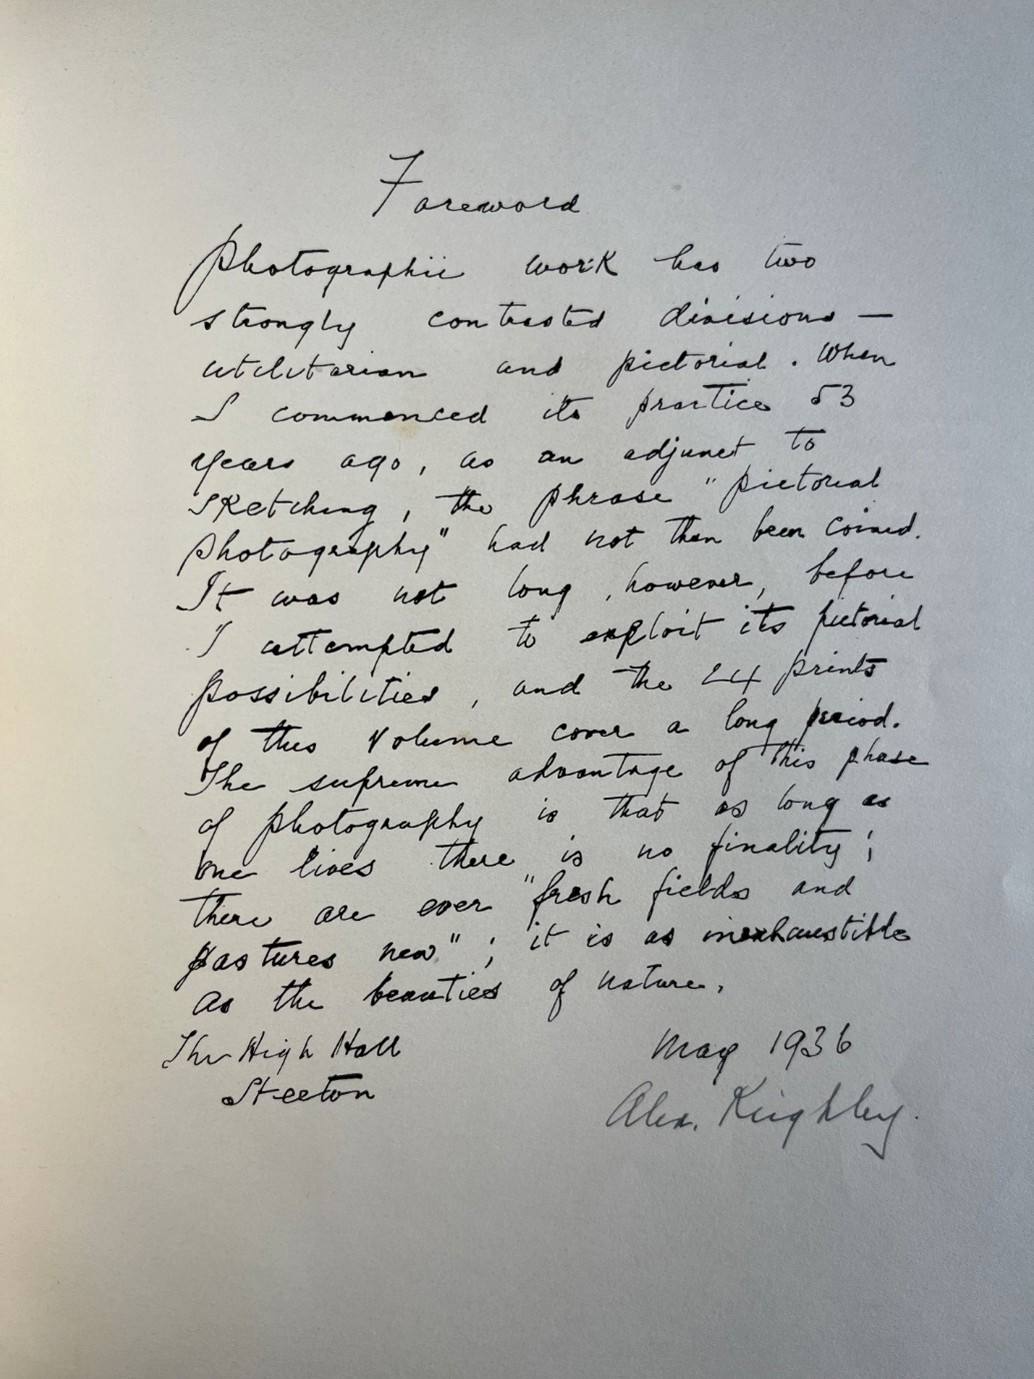 Foreword
Photographic work has two
strongly contrasted divisions —
utilitarian and pictorial. When
I commenced its practice 53
years ago, as an adjunct to
sketching, the phrase "pictorial
photography" had not then been coined.
It was not long, however, before
I attempted to exploit its pictorial
possibilities, and the 24 prints
of this volume cover a long period.
The supreme advantage of this phase
of photography is that as long as
one lives there is no finality;
there are ever "fresh fields and
pastures new"; it is as inexhaustible
as the beauties of nature.
The High Hall May 1936
Steeton
Alex. Keighley.